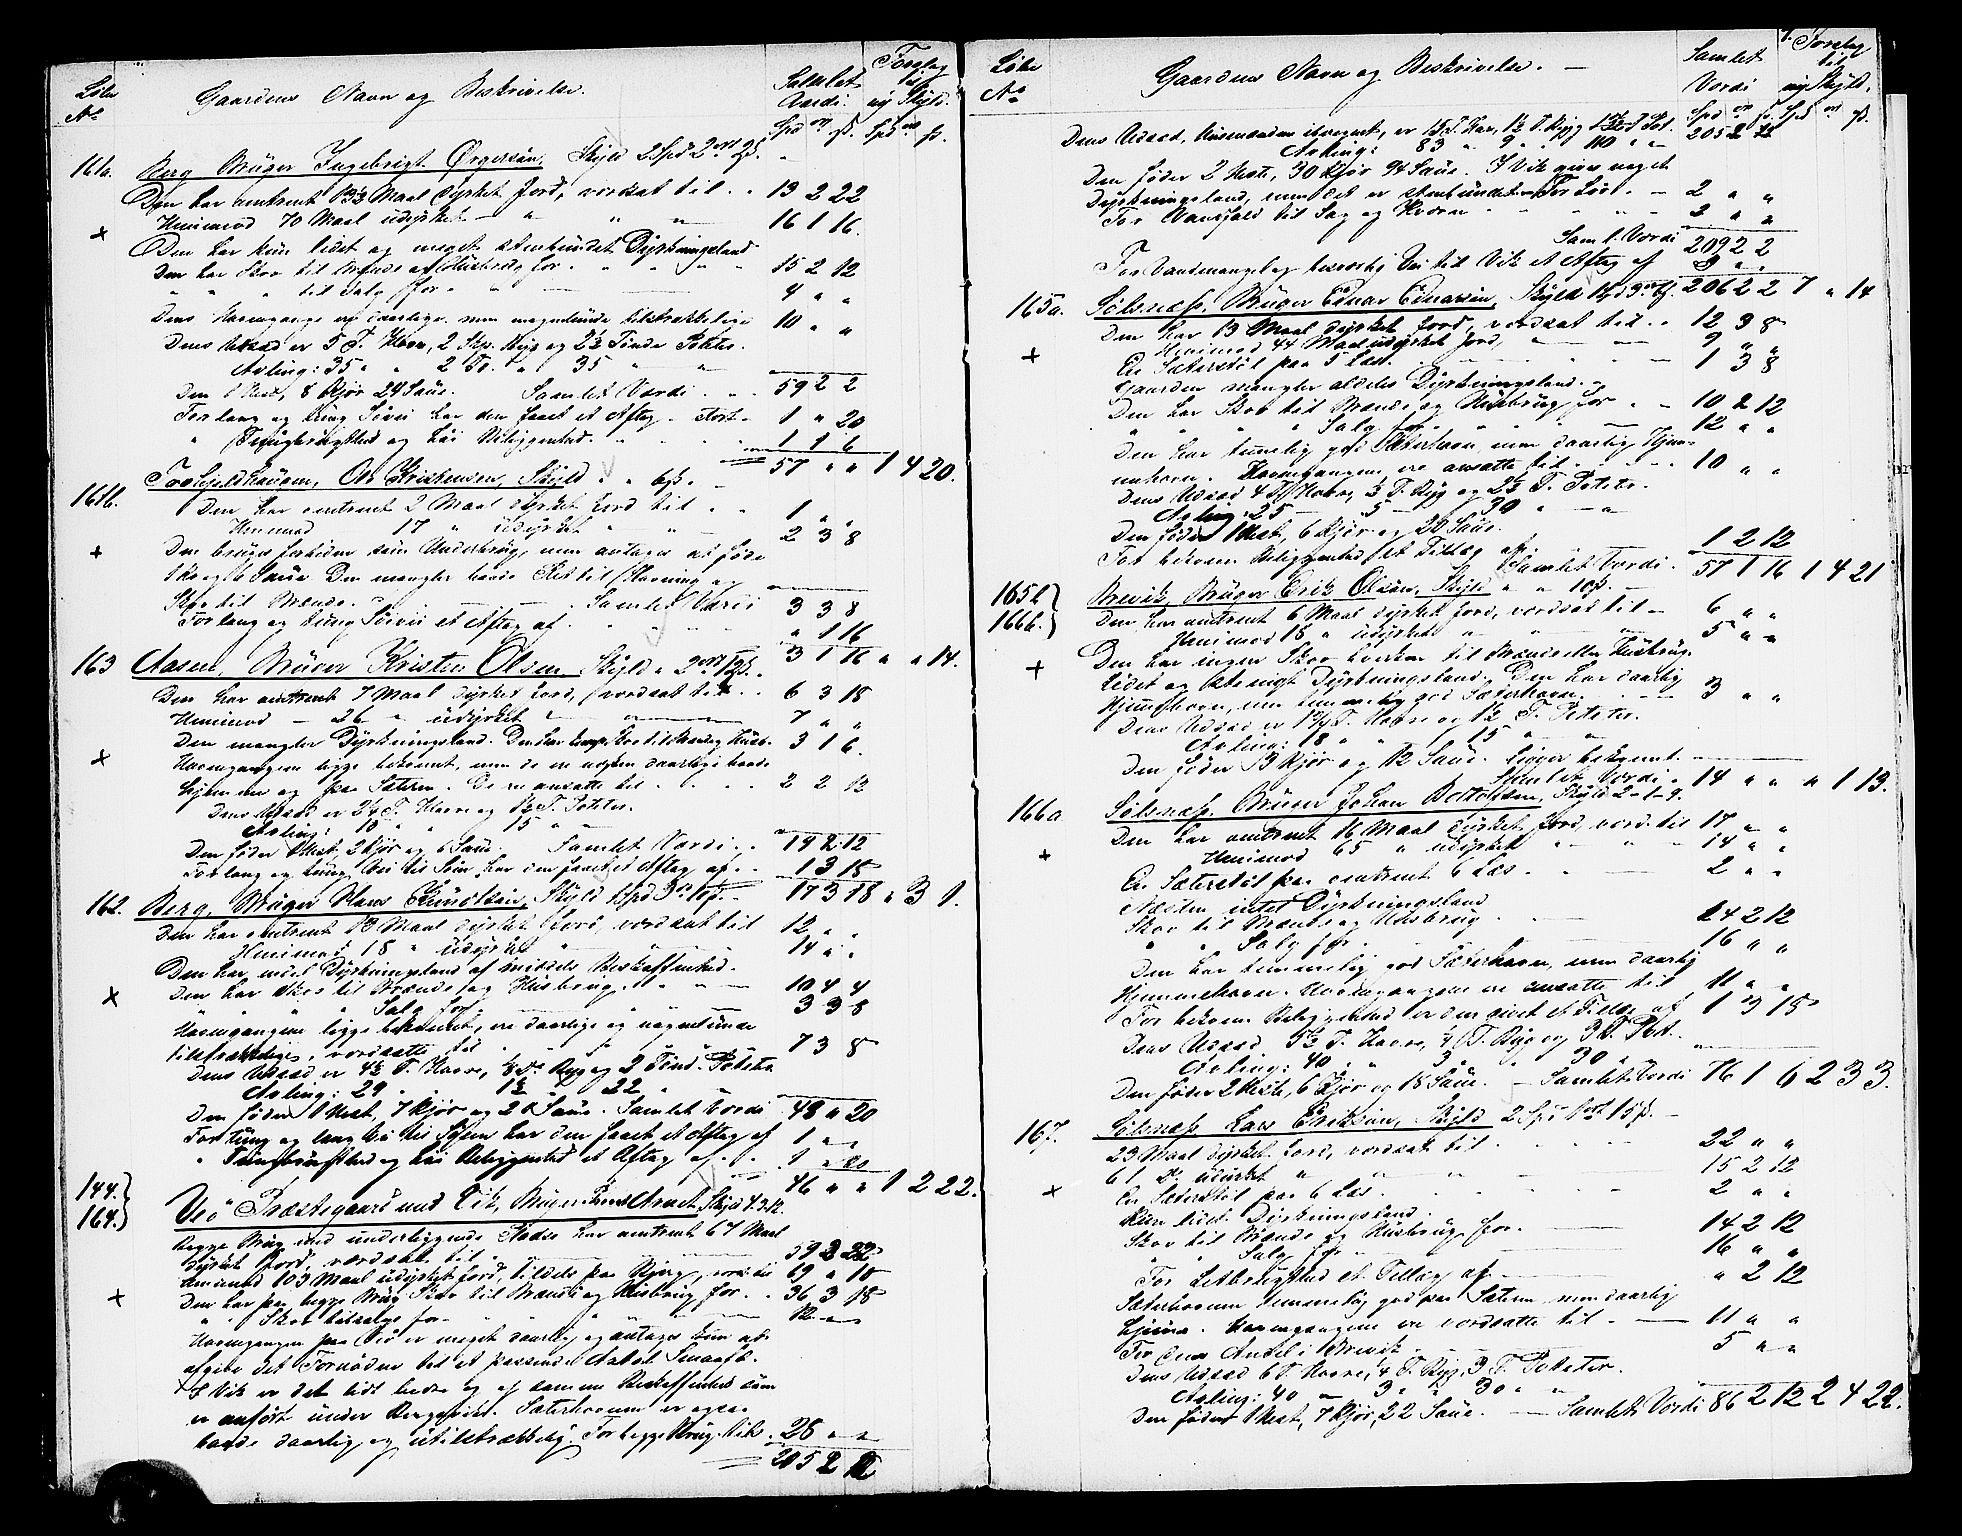 Löbe
No
Gaardens Navn og Beskrivelse.
Samlet
Værdi.
Forslag
til
ny Skyld.
Spd ort ß. Spd ort ß.
161a. Berg Bruger Ingebrigt Skyld 2 Spd 2 ort
Den har omtrent 13½ Maal dyrket Jord, værdsat til . . 13 2 22
Henimod 70 Maal udyrket 16 1 16.
Den har kun lidet og meget Dyrkningsland
Den har Skov til Brænde og Husbrug for 15 2 12
" " " til Salg for 4 " "
Dens Havnegange ere daarlige men nogenlunde tilstrækkelige 10 " "
Dens Udsæd er 5 T. Havre, 2 Skp. Byg og 2½ Tønde Poteter.
Avling: 35 " " 2 To. " 35 "
Den 1 Hest, 8 Kjør 24 Sauer. Samlet Værdi . . 59 2 2
For lang og tung Søvei har den faaet et Aftag 1 " 20
" Tungbrugthed og Beliggenhed. 1 1 6
57 " " 1 4 20.
161b. Ole Kristensen, Skyld " " 6ß.
Den har omtrent 2 Maal dyrket Jord til . . 1 " "
Henimod 17 " udyrket " 2 3 8
Den bruges forhiden som Underbrug, men antages at føde
1 Ko og 6 Sauer Den mangler baade Ret til Havning og
Skov til Brænde. Samlet Værdi 3 3 8
For lang og tung Søvei et Aftag af " 1 16
3 1 16 " " 14.
163 Aasen, Bruger Kristen Olsen Skyld " 2 ort 12ß.
Den har omtrent 7 Maal dyrket Jord, værdsat til . . 6 3 18
Henimod — 26 " udyrket 7 " "
Den mangler Dyrkningsland. Den har Skov til Brænde og Husb. 3 1 6.
Havnegangene ligge bekvemt, men de ere nogen daarlige baade
hjemme og paa Sæteren. De ere ansatte til 2 2 12
Dens Udsæd er 2¼ T. Havre og 1½ T. Poteter.
Avling: 18 " 15 "
Den føder 1 Hest, 2 Kjør og 6 Sauer. Samlet Værdi . . 19 2 12
For lang og tung Vei til Søen har den faaet et Aftag af . . 1 3 18
17 3 18 " 3 1.
162. Berg, Bruger Hans Knudsen, Skyld 1 Spd 3 ort 10ß.
Den har omtrent 13 Maal dyrket Jord, værdsat til 12 " "
Henimod 18 " udyrket 14 " "
Den har Dyrkningsland af middels Beskaffenhed.
Den har Skov til Brænde og Husbrug 10 4 4
" " " Salg for 3 3 8
Havnegangene ligge bekvemt, ere daarlige og nogenlunde
tilstrækkelige, værdsatte til 7 3 8
Dens Udsæd er 4½ T. Havre, ⅛ Do Byg og 2 Tønd. Poteter
Avling: 29 " 1½ 22
Den føder 1 Hest, 7 Kjør og 20 Sauer. Samlet Værdi 48 " 20
For tung og lang Vei til Søen har den faaet et Aftag af 1 " "
" Tungbrugthed og Beliggenhed et Aftag af 1 " 20
46 " " 1 2 22.
144.}
164.} Veø Præstegaard med Vik, Bruger Skyld
Begge Brug med underliggende Pladse har omtrent 67 Maal
dyrket Jord, værdsat til 59 2 22
Henimod 103 Maal udyrket Jord, tildels paa Bjerg, værds. til 69 " 18
Den har paa begge Brug Skov til Brænde og Husbrug for . . 36 3 18
" " Skov tilsalgs for 12 " "
Havnegangen paa Veø er meget daarlig og antages kun at
afgive det Fornødne til et passende Antal Smaafæ.
I Vik er det lidt bedre og af samme Beskaffenhed som
er anført under Berggaard. Sæterhavnen er ogsaa
baade daarlig og utilstrækkelig. For begge Brug 28 " "
205 2 12
Löbe
No
Gaardens Navn og Beskrivelse. —
Samlet
Værdi
Forslag
til
ny Skyld.
Spd ort ß. Spd ort ß.
Dens Udsæd, Husmændene iberegnet, er 15 T. Hav, 1½ T. Byg Pot. 205 2 12
Avling: 83 " 9 " 110 " "
Den føder 2 Heste, 30 Kjør 94 Sauer. I Vik gives noget
Dyrkningsland, men det er stenbundet. 2 " "
For Vandfald til Sag og Kværn 2 " "
Saml. Værdi 209 2 2
For Vandmangel og besværlig Vei til Vik et Aftag af 3 " "
206 2 2 7 " 14
165a. Sølsnæss, Bruger Einar Einarsen, Skyld
Den har 13 Maal dyrket Jord, værdsat til . . 12 3 8
Henimod 44 Maal udyrket Jord, 9 " "
En Sæterstøl paa 5 Læs. 1 3 8
Gaarden mangler aldeles Dyrkningsland.
Den har Skov til Brænde og Husbrug for 10 2 12
" " " " Salg for 12 " "
Den har temmelig god Sæterhavn, men daarlig Hjem-
mehavn. Havnegangene ere ansatte til 10 " "
Dens Udsæd 4 T. Havre, ½ T. Byg og 2½ T. Poteter.
Avling: 25 — 5 — 30 "
Den føder 1 Hest, 6 Kjør og 20 Sauer.
For bekvem Beliggenhed et Tillæg af 1 2 12
Samlet Værdi. 57 1 16 1 4 21
165b}
166b.} Brevik, Bruger Erik Olsen, Skyld " " 10ß.
Den har omtrent 6 Maal dyrket Jord, værdsat til 6 " "
Henimod 18 " udyrket 5 " "
Den har ingen Skov hverken til Brænde eller Husbrug.
Lidet og stenigt Dyrkningsland. Den har daarlig
Hjemmehavn, men temmelig god Sæterhavn. 3 " "
Dens Udsæd er T. Havre og 1½ T. Poteter.
Avling: 18 " " 15 "
Den føder 3 Kjør og 12 Sauer. ligger bekvemt.
Samlet Værdi. 14 " " " 1 13.
166a Sølsnæss, Bruger Johan Bottolfsen, Skyld 2-1-9.
Den har omtrent 16 Maal dyrket Jord, værd. til 17 " "
Henimod 65 " udyrket 14 " "
En Sæterstøl paa omtrent 6 Læs. 2 " "
Næsten intet Dyrkningsland
Skov til Brænde og Husbrug 14 2 12
" " Salg for 16 " "
Den har temmelig god Sæterhavn, men daarlig
Hjemmehavn. Havnegangene ere ansatte til 11 " "
For bekvem Beliggenhed er den givet et Tillæg af 1 3 15
Dens Udsæd 5½ T. Havre, ¼ T. Byg og 3 T. Pot.
Avling: 40 " 3 " 30 "
Den føder 2 Heste, 6 Kjør og 18 Sauer. — Samlet Værdi 76 1 6 2 3 3.
167. Sølsnæss Lars Eriksen, Skyld 2 Spd 1 ort 15ß.
23 Maal dyrket Jord, værdsat til 22 " "
61 Do udyrket " " 15 2 12
En Sæterstøl paa 6 Læs. 2 " "
Kun lidet Dyrkningsland.
Skov til Brænde og Husbrug for. 14 2 12
" " Salg for 16 " "
For Letbrugthed et Tillæg af " 2 12
Sæterhavnen temmelig god paa Sæteren men daarlig
hjeme. Havnegangene ere værdsatte til 11 " "
For dens Andel i Brevik 5 " "
Dens Udsæd 6 T. Havre, ¼ T. Byg, 3 T. Poteter.
Avling: 40 " 3 " 30 "
Den føder 1 Hest, 7 Kjør, 22 Sauer. — Samlet Værdi 86 2 12 2 4 22.